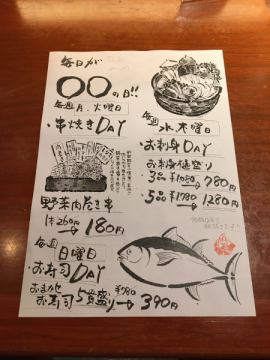 毎日が
〇〇の日!!
毎週 月、火曜日
・串焼きDAY
野菜肉巻き串
1本260円→180円
毎週 水、木曜日
・お刺身DAY
お刺身値盛り
・3品 ¥1080→780円
・5品 ¥1780→1280円
毎週 日曜日
・お寿司DAY
おまかせ
お寿司 5貫盛り ¥780→390円